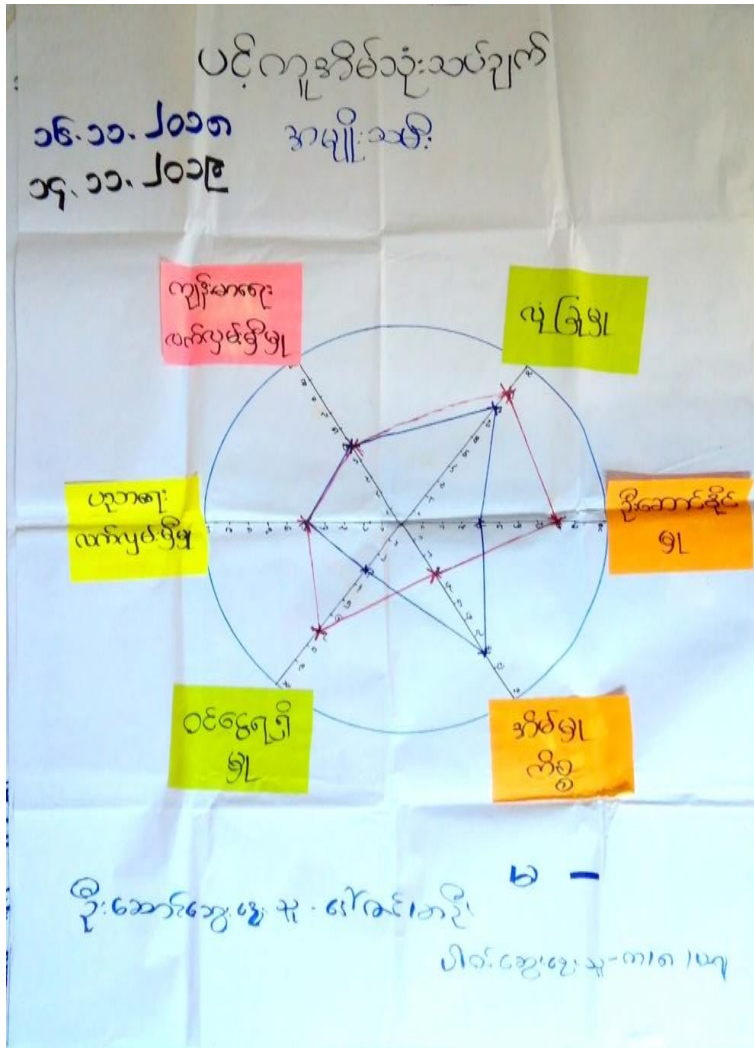 ပင့်ကူအိမ်သုံးသပ်ချက်
၁၆.၁၁.၂၀၁၈
အမျိုးသမီး
၁၄.၁၁.၂၀၁၉
ကျန်းမာရေး
လက်လှမ်းမှီမှု
လုံခြုံမှု
ပညာရေး
လက်လှမ်းမှီမှု
ဦးဆောင်နိုင်
မှု
ဝင်ငွေရရှိ
မှု
အိမ်မှု
ကိစ္စ
မ -
ဦးဆောင်ဆွေးနွေးသူ -
ပါဝင်ဆွေးနွေးသူ -